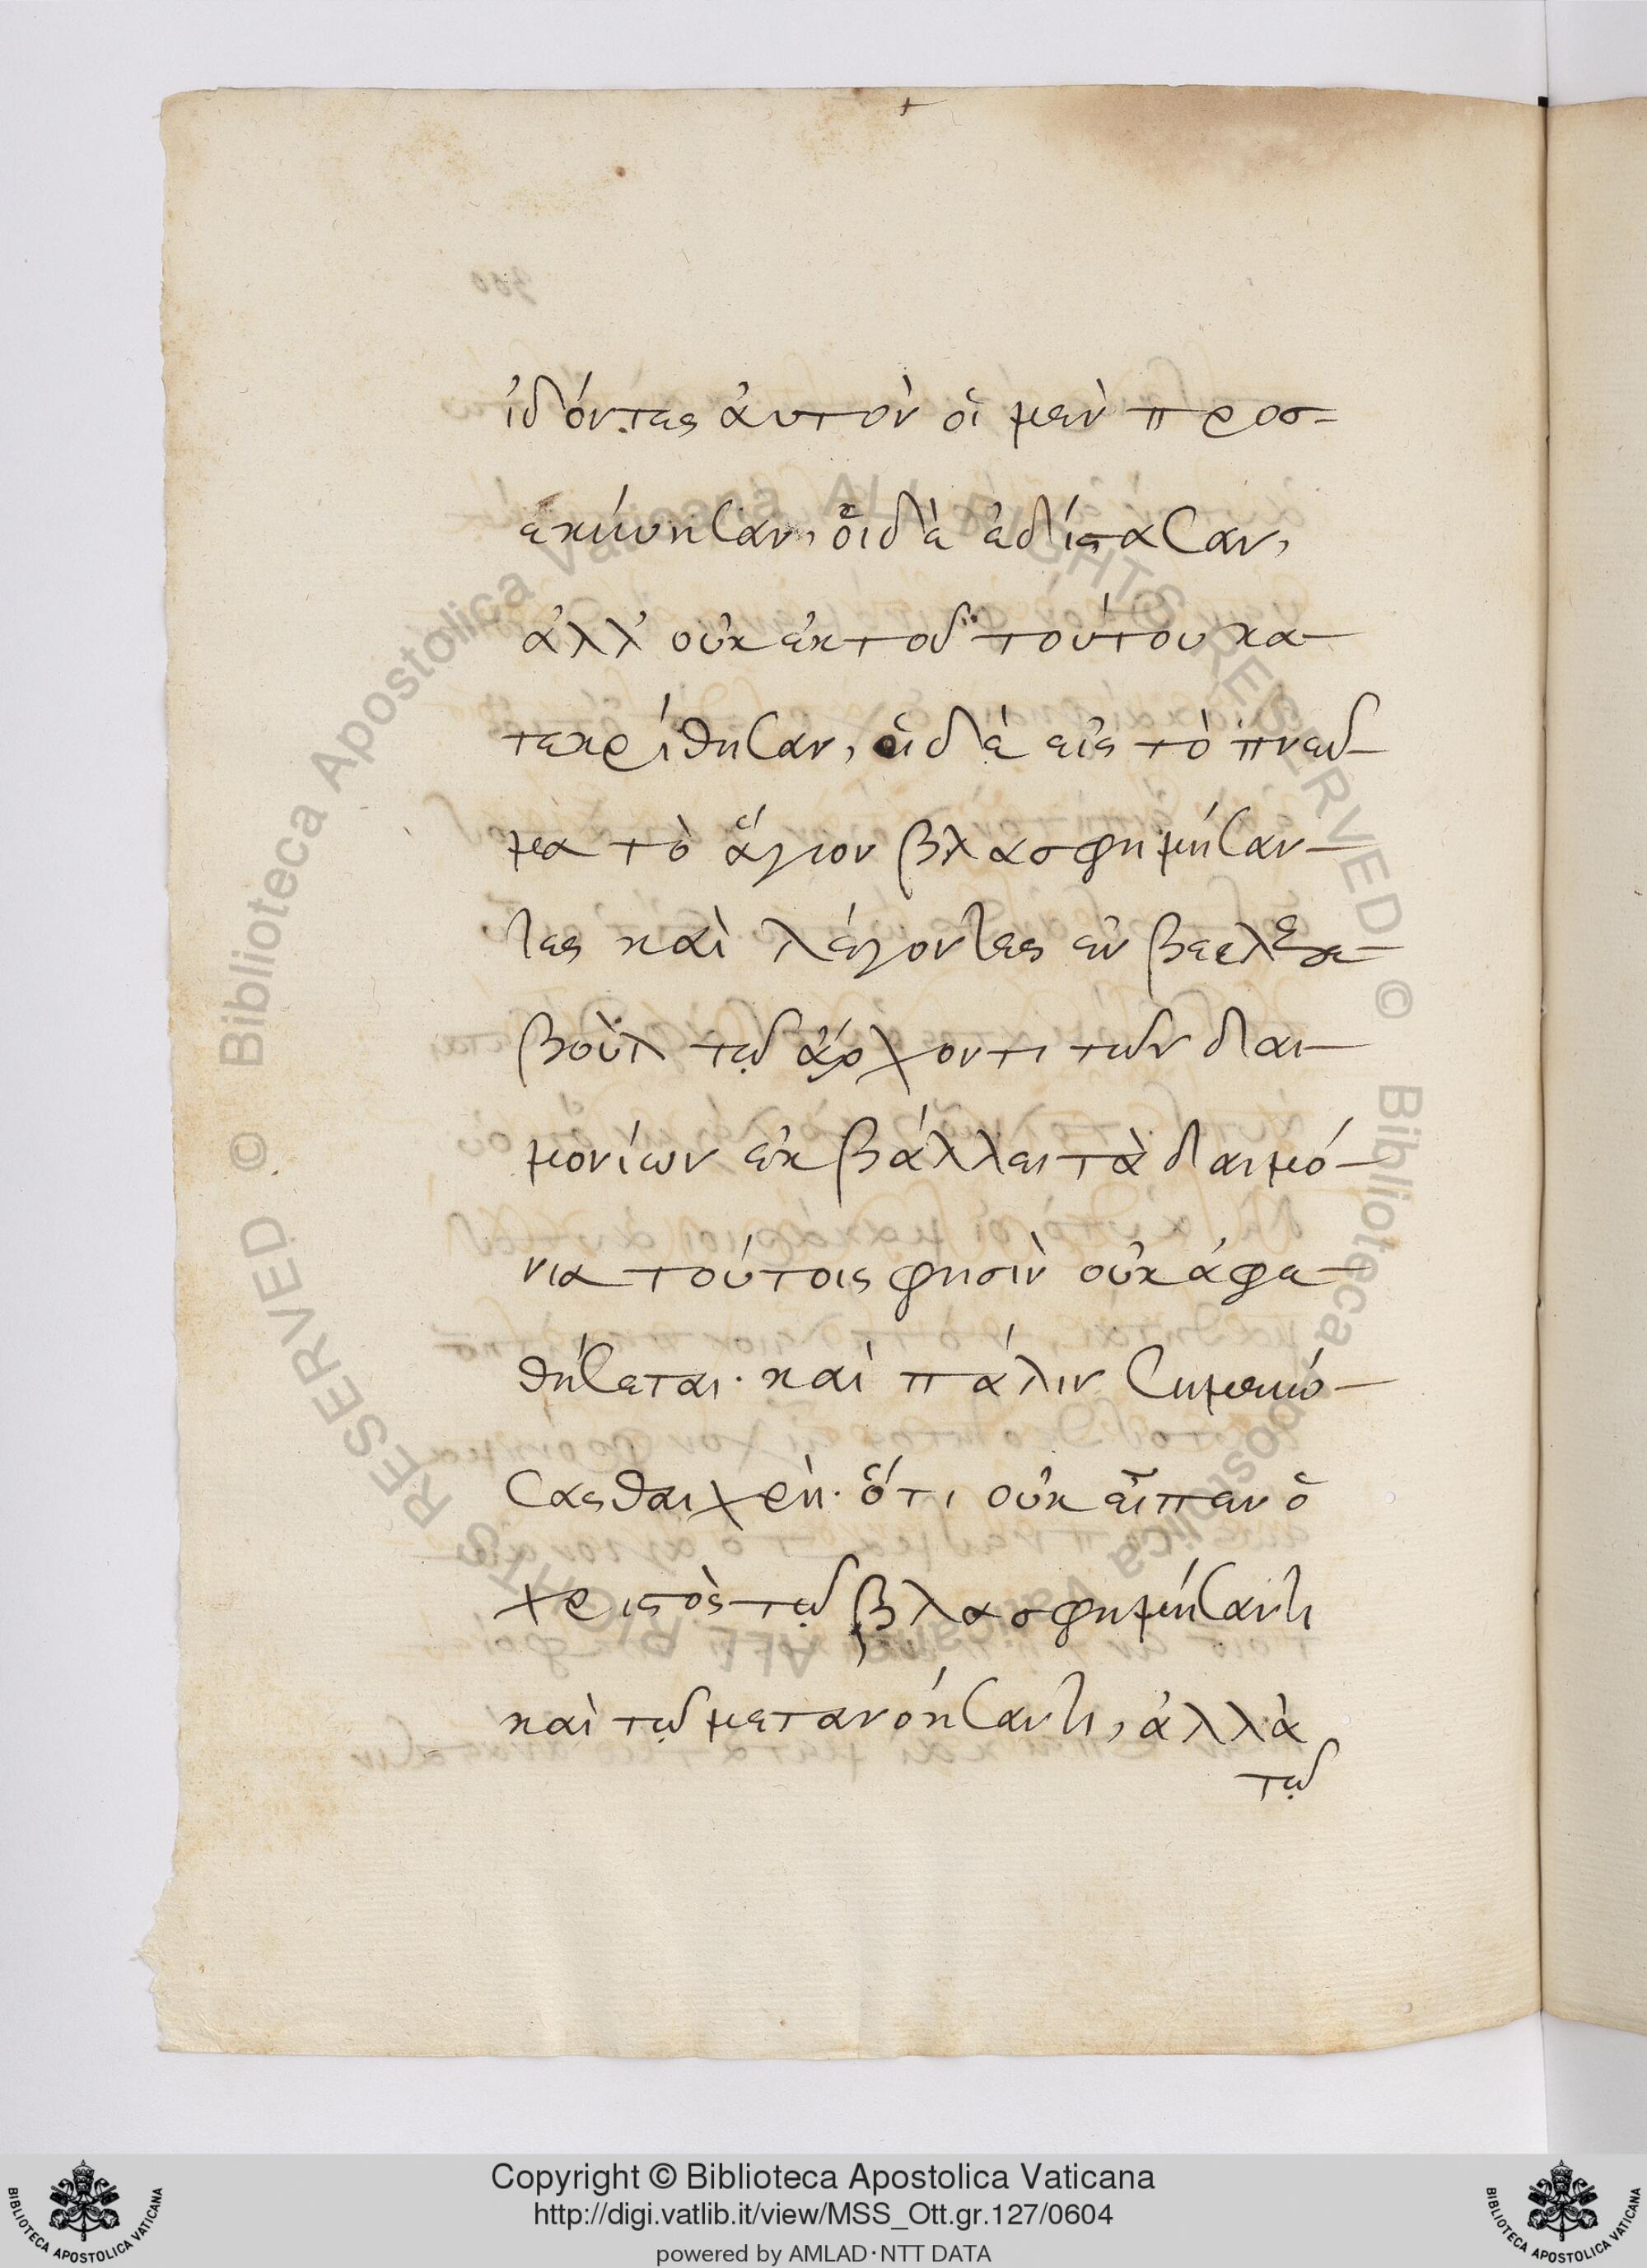 ἰδόντες ἀυτὸν οἱ μὲν προσ-
εκύνησαν, οἱ δὲ ἐδίστασαν,
ἀλλ' οὐκ ἐκ τοῦ τούτου κα-
τεκρίθησαν, οἱ δὲ εἰς τὸ πνεῦ-
μα τὸ ἅγιον βλασφημήσαν-
τες καὶ λέγοντες ἐν βεελζε-
βοὺλ τῷ ἄρχοντι τῶν δαι-
μονίων ἐκβάλλει τὰ δαιμό-
νια τούτοις φησὶν οὐκ ἀφε-
θήσεται· καὶ πάλιν σημειώ-
σασθαι χρή· ὅτι οὐκ εἶπεν ὁ
χριστὸς τῷ βλασφημήσαντι
καὶ τῷ μετανοήσαντι, ἀλλὰ
τῷ
Copyright © Biblioteca Apostolica Vaticana
http://digi.vatlib.it/view/MSS_Ott.gr.127/0604
powered by AMLAD·NTT DATA
BIBLIOTECA APOSTOLICA VATICANA
BIBLIOTECA APOSTOLICA VATICANA
© Biblioteca Apostolica Vaticana ALL RIGHTS RESERVED © Biblioteca Apostolica Vaticana ALL RIGHTS RESERVED